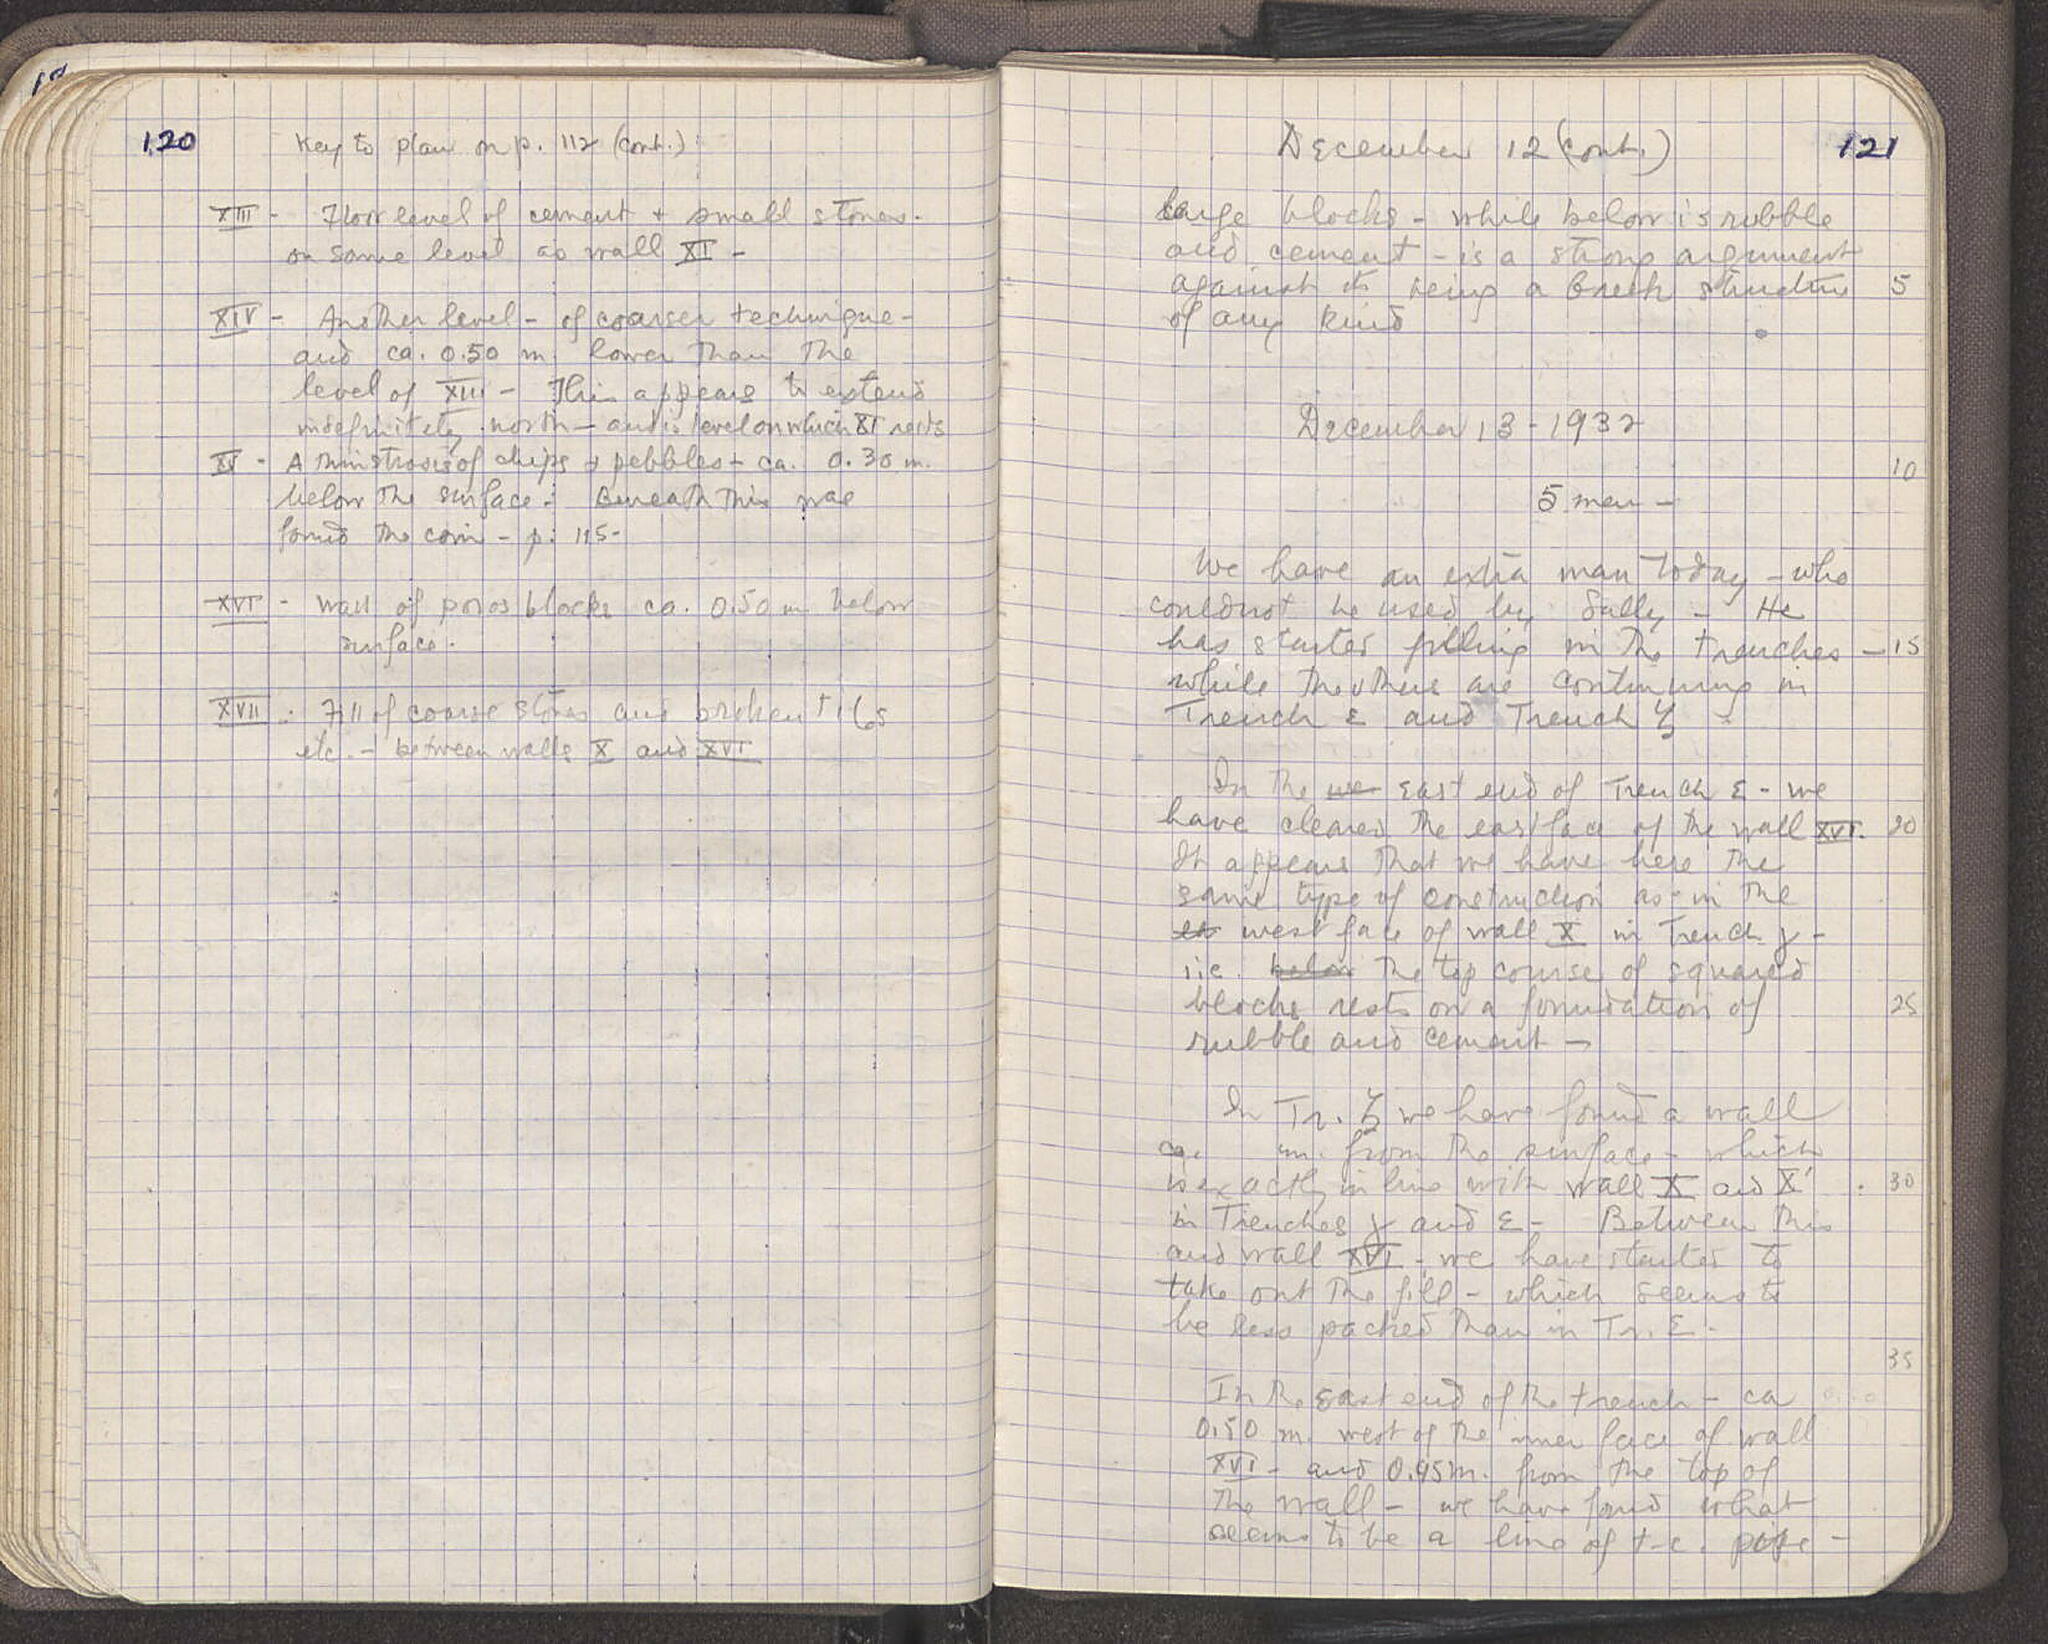 120
Key to plan on p. 112 (cont.):
XIII - Floor level of cement + small stones.
on same level as wall XI -
XIV - Another level - of coarser technique -
and ca. 0.50 m. lower than the
level of XIII - This appears to extend
indefinitely north - and is level on which XI rests
XV - A thin strosis of chips + pebbles - ca. 0.30 m.
below the surface. Beneath this was
found the coin - p. 115 -
XVI - Wall of poros blocks ca. 0.50 m below
surface.
XVII - Fill of coarse stones and broken tiles
etc. - between walls X and XVI
December 12 (cont.)
121
large blocks - while below is rubble
and cement - is a strong argument
against its being a Greek structure 5
of any kind
December 13 - 1932
10
5 men -
We have an extra man today - who
could not be used by Sally - He
has started filling in the trenches - 15
while the others are continuing in
Trench ε and Trench ζ -
In the we east end of Trench ε - we
have cleared the east face of the wall XVI. 20
It appears that we have here the
same type of construction as in the
west face of wall X in Trench γ -
i.e. below the top course of squared
blocks rests on a foundation of 25
rubble and cement -
In Tr. ζ we have found a wall
ca. m. from the surface - which
is exactly in line with wall X and X' . 30
in Trenches γ and ε - Between this
and wall XVI - we have started to
take out the fill - which seems to
be less packed than in Tr. ε -
35
In the east end of the trench - ca
0.50 m. west of the inner face of wall
XVI - and 0.95 m. from the top of
the wall - we have found what
seems to be a line of t-c. pipe -